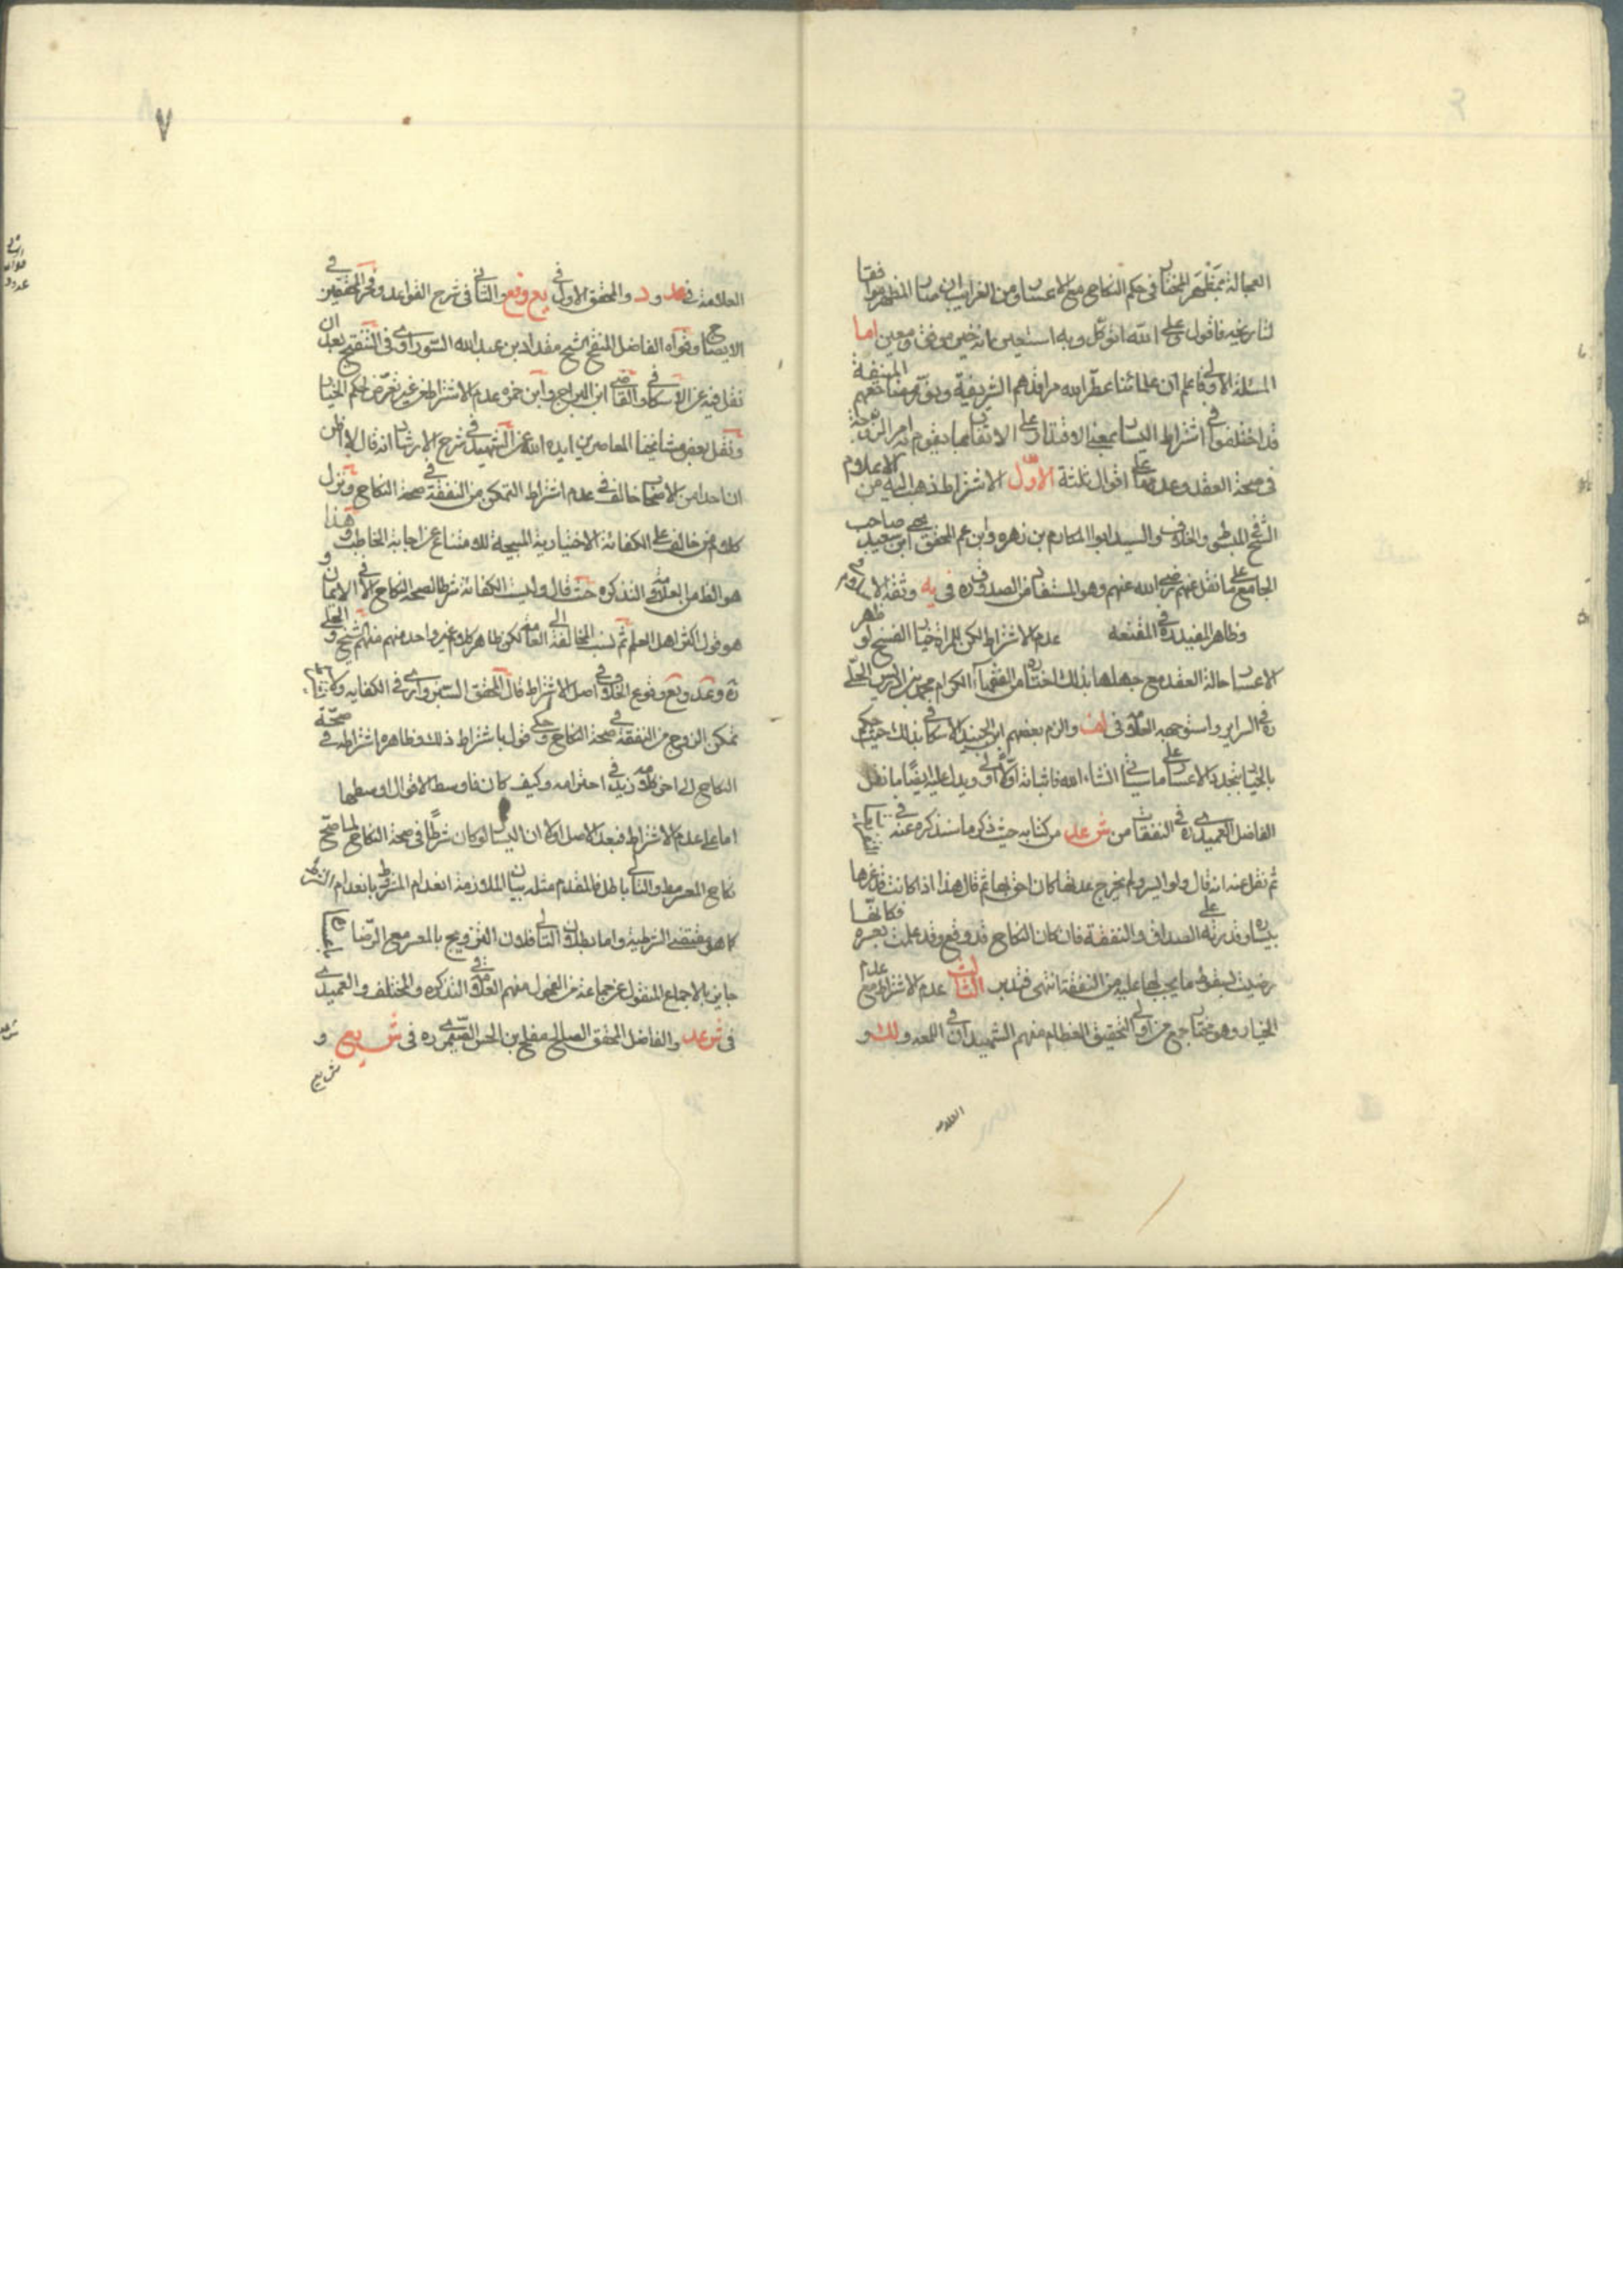 العجالة بمظهر المختار في حكم النكاح مع الاعسار ومن الغرايب ان صار المظهر موافقا
لتاريخه فاقول على الله اتوكل وبه استعين انه خير موفق ومعين اما
المسئلة الاولى فاعلم ان علمائنا عطر الله مراقدهم الشريفة ونور مضاجعهم المنيفة
قد اختلفوا في اشتراط اليسار بمعنى الاقتدار على الانفاق بها يقوم به امر الزوجة
في صحة العقد وعدمها على اقوال ثلثة الاول الاشتراط ذهب اليه من الاعلام
الشيخ في المبسوط والخلاف والسيد ابو المكارم بن زهره وابن عم المحقق يحيى ابن سعيد صاحب
الجامع على ما نقل عنهم رضي الله عنهم وهو المستفاد من الصدوق ره في يه وثقة الاسلام
وظاهر المفيد ره في المقنعه عدم الاشتراط لكن للمراة خيار الفسخ لو ظهر
الاعسار حالة العقد مع جهلها بذلك اختاره من الفقهاء الكرام محمد بن ادريس الحلي
ره في السراير واستوجهه العلامه في لف والزم بعضهم ابن الجنيد الاسكافي بذلك حيث حكم
بالخيار بتجدد الاعسار على ما سياتي انشاء الله فاثباته اولا اولى ويدل عليه ايضا ما نقل
الفاضل العميدي ره في النفقات من ش عد من كتابه حيث ذكر ما سنذكره عنه في
ثم نقل عنه انه قال ولو ايسر ولم يخرج عدتها كان احق بها ثم قال هذا اذا كانت قد غرها
بيساره وقدرته على الصداق والنفقة فان كان النكاح قد وقع وقد علمت بعسره فكانها
رضيت بسقوط ما يجب لها عليه من النفقة انتهى فتدبر الثالث عدم الاشتراط مع عدم
الخيار وهو مختار جمع من اولى التحقيق العظام منهم الشهيدان في اللمعه ولك و
العلامه
٧
العلامة في عد و د والمحقق الاول في يع وفع والثاني في شرح القواعد وفخر المحققين في
الايضاح وقواه الفاضل المنقح الشيخ مقداد بن عبد الله السيوري في التنقيح بعد ان
نقل فيه عن الاسكافي والقاضي ابن البراج وابن حمزه عدم الاشتراط من غير تعرض لحكم الخيار
ونقل بعض مشايخنا المعاصرين ايده الله عن الشهيد في شرح الارشاد انه قال لا اظن
ان احدا من الاصحاب خالف في عدم اشتراط التمكن من النفقة في صحة النكاح ونزل
كلام من خالف على الكفائة الاختيارية المبيحة للامتناع عن اجابة الخاطب وهذا
هو الظاهر من العلامه في التذكره حيث قال وليست الكفائة شرطا لصحة النكاح الا في الايمان و
هو قول اكثر اهل العلم ثم نسب المخالفة الى العامه لكن ظاهر كلام غير واحد منهم الشيخ و الحلي
ره وعد ويع وقوع الخلاف في اصل الاشتراط قال المحقق السبزواري في الكفايه وكا
تمكن الزوج من النفقة في صحة النكاح وحكي قول باشتراط ذلك وظاهره اشتراطه في صحة
النكاح الى اخر كلامه زيد في احترامه وكيف كان فاوسط الاقوال اوسطها
اما على عدم الاشتراط فبعد الاصل اولا ان اليسار لو كان شرطا في صحة النكاح لما صح
نكاح المعسر والتالي باطل فالمقدم مثله بيان الملازمة انعدام المشروط بانعدام الشرط
كما هو مقتضى الشرطية واما بطلان التالي فلان التزويج بالمعسر مع الرضا
جايز بالاجماع المنقول عن جماعة من الفحول منهم العلامه في التذكره والمختلف والعميدي
في ش عد والفاضل المحقق الصالح مفلح بن الحسن الصيمري ره في ش يع و
ش يع